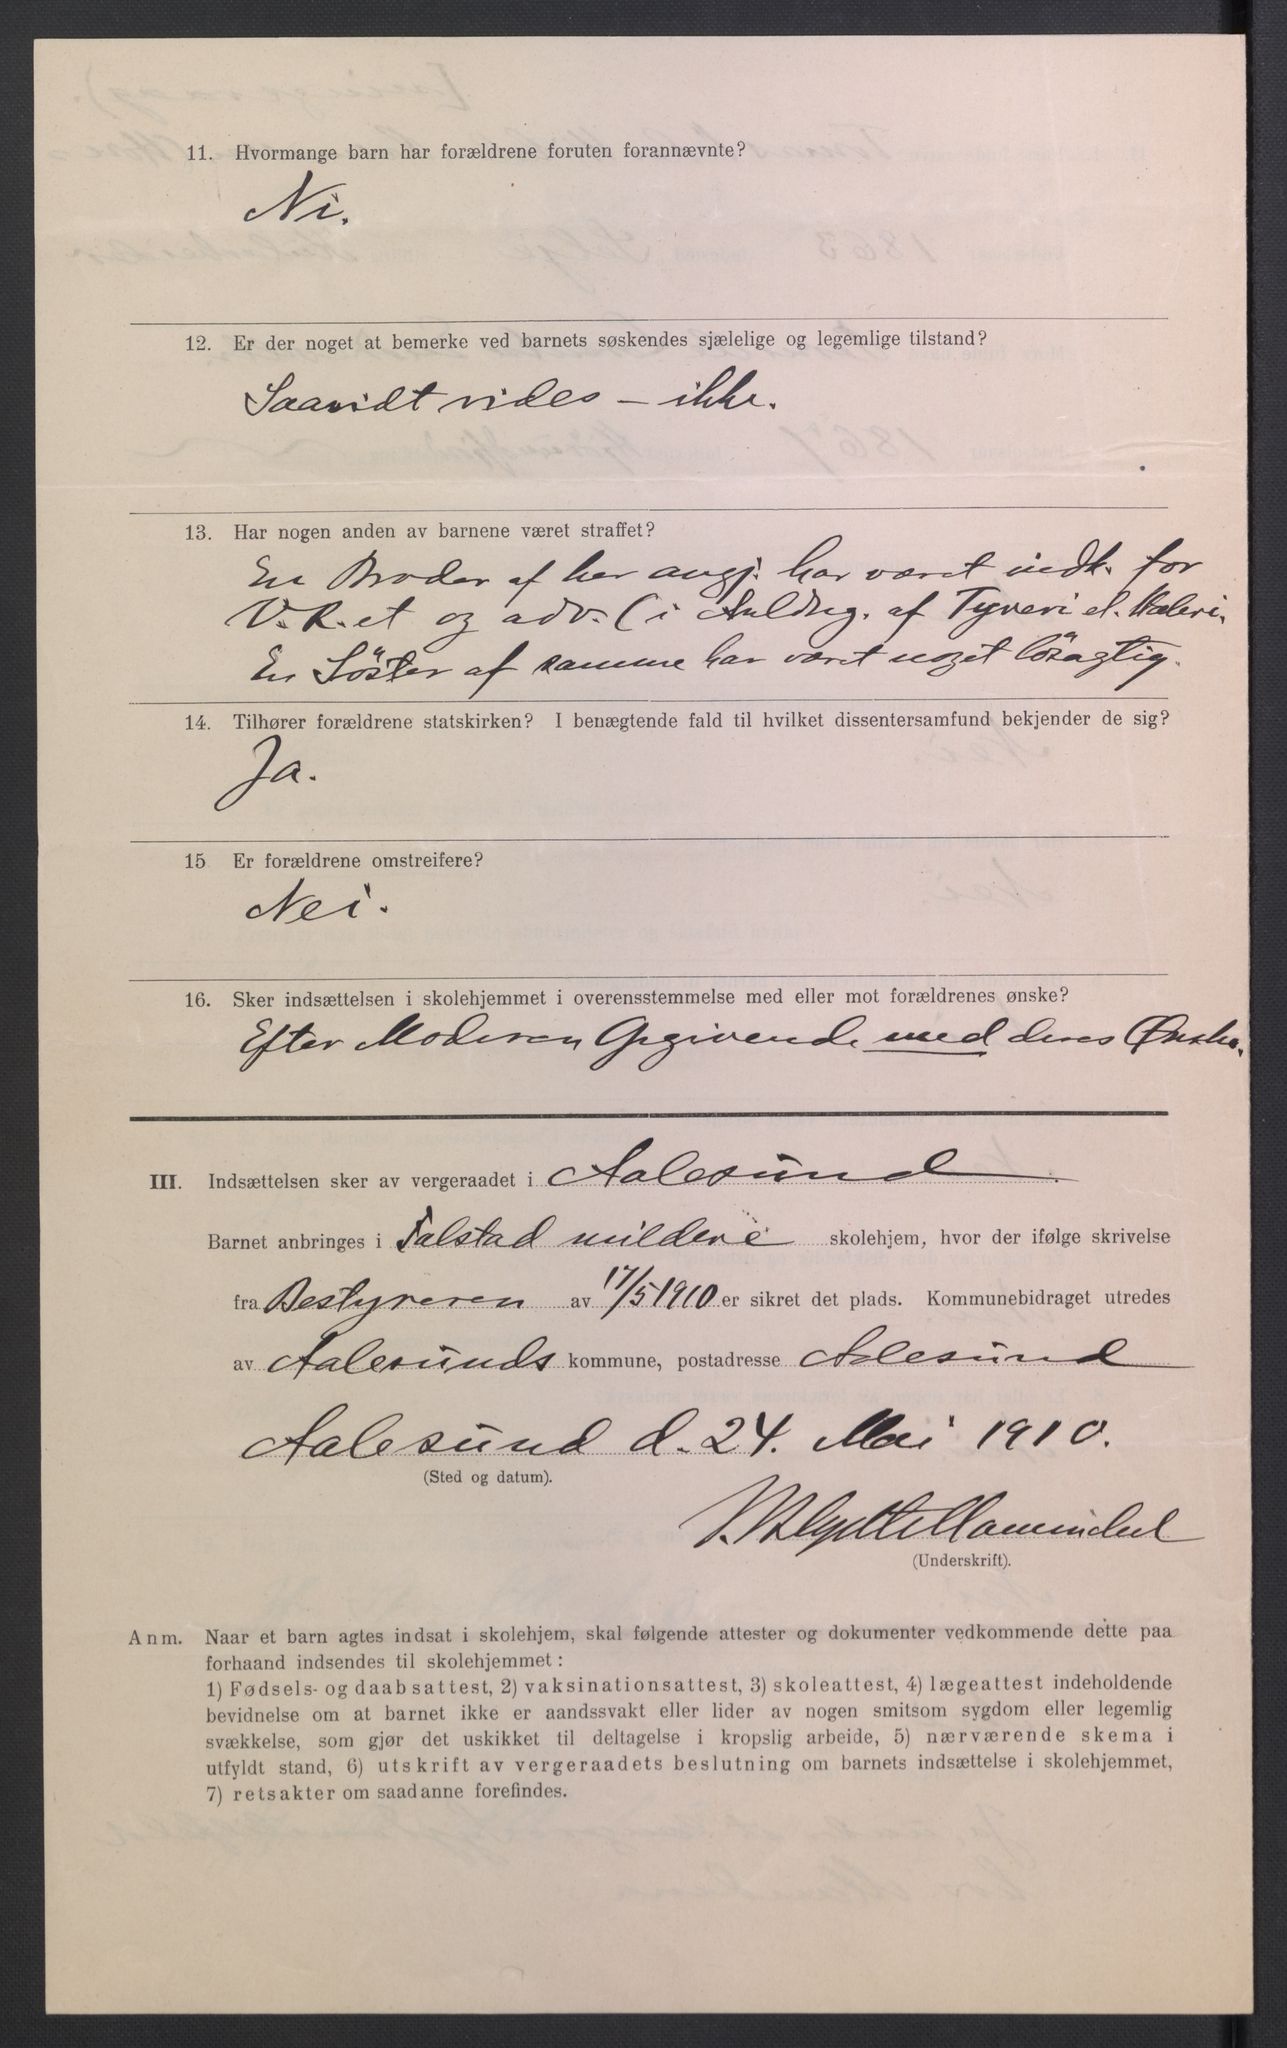 11. Hvormange barn har forældrene foruten forannævnte?
Ni.
12. Er der noget at bemerke ved barnets søskendes sjælelige og legemlige tilstand?
Saavidt vides – ikke.
13. Har nogen anden av barnene været straffet?
En Broder af her angj. har været indk. for
V.R.et og adv. (i Anldng. af Tyveri el. Heleri.
En Söster af samme har været noget lösagtig.
14. Tilhører forældrene statskirken? I benægtende fald til hvilket dissentersamfund bekjender de sig?
Ja.
15 Er forældrene omstreifere?
Nei.
16. Sker indsættelsen i skolehjemmet i overensstemmelse med eller mot forældrenes ønske?
Efter Moderen Opgivende med deres Ønske.
III. Indsættelsen sker av vergeraadet i Aalesund.
Barnet anbringes i Falstad mildere skolehjem, hvor der ifølge skrivelse
fra Bestyreren av 17/5 1910 er sikret det plads. Kommunebidraget utredes
av Aalesunds kommune, postadresse Aalesund
Aalesund d. 24. Mai 1910.
(Sted og datum).
(Underskrift).
Anm. Naar et barn agtes indsat i skolehjem, skal følgende attester og dokumenter vedkommende dette paa
forhaand indsendes til skolehjemmet:
1) Fødsels- og daabsattest, 2) vaksinationsattest, 3) skoleattest, 4) lægeattest indeholdende
bevidnelse om at barnet ikke er aandssvakt eller lider av nogen smitsom sygdom eller legemlig
svækkelse, som gjør det uskikket til deltagelse i kropslig arbeide, 5) nærværende skema i
utfyldt stand, 6) utskrift av vergeraadets beslutning om barnets indsættelse i skolehjemmet,
7) retsakter om saadanne forefindes.